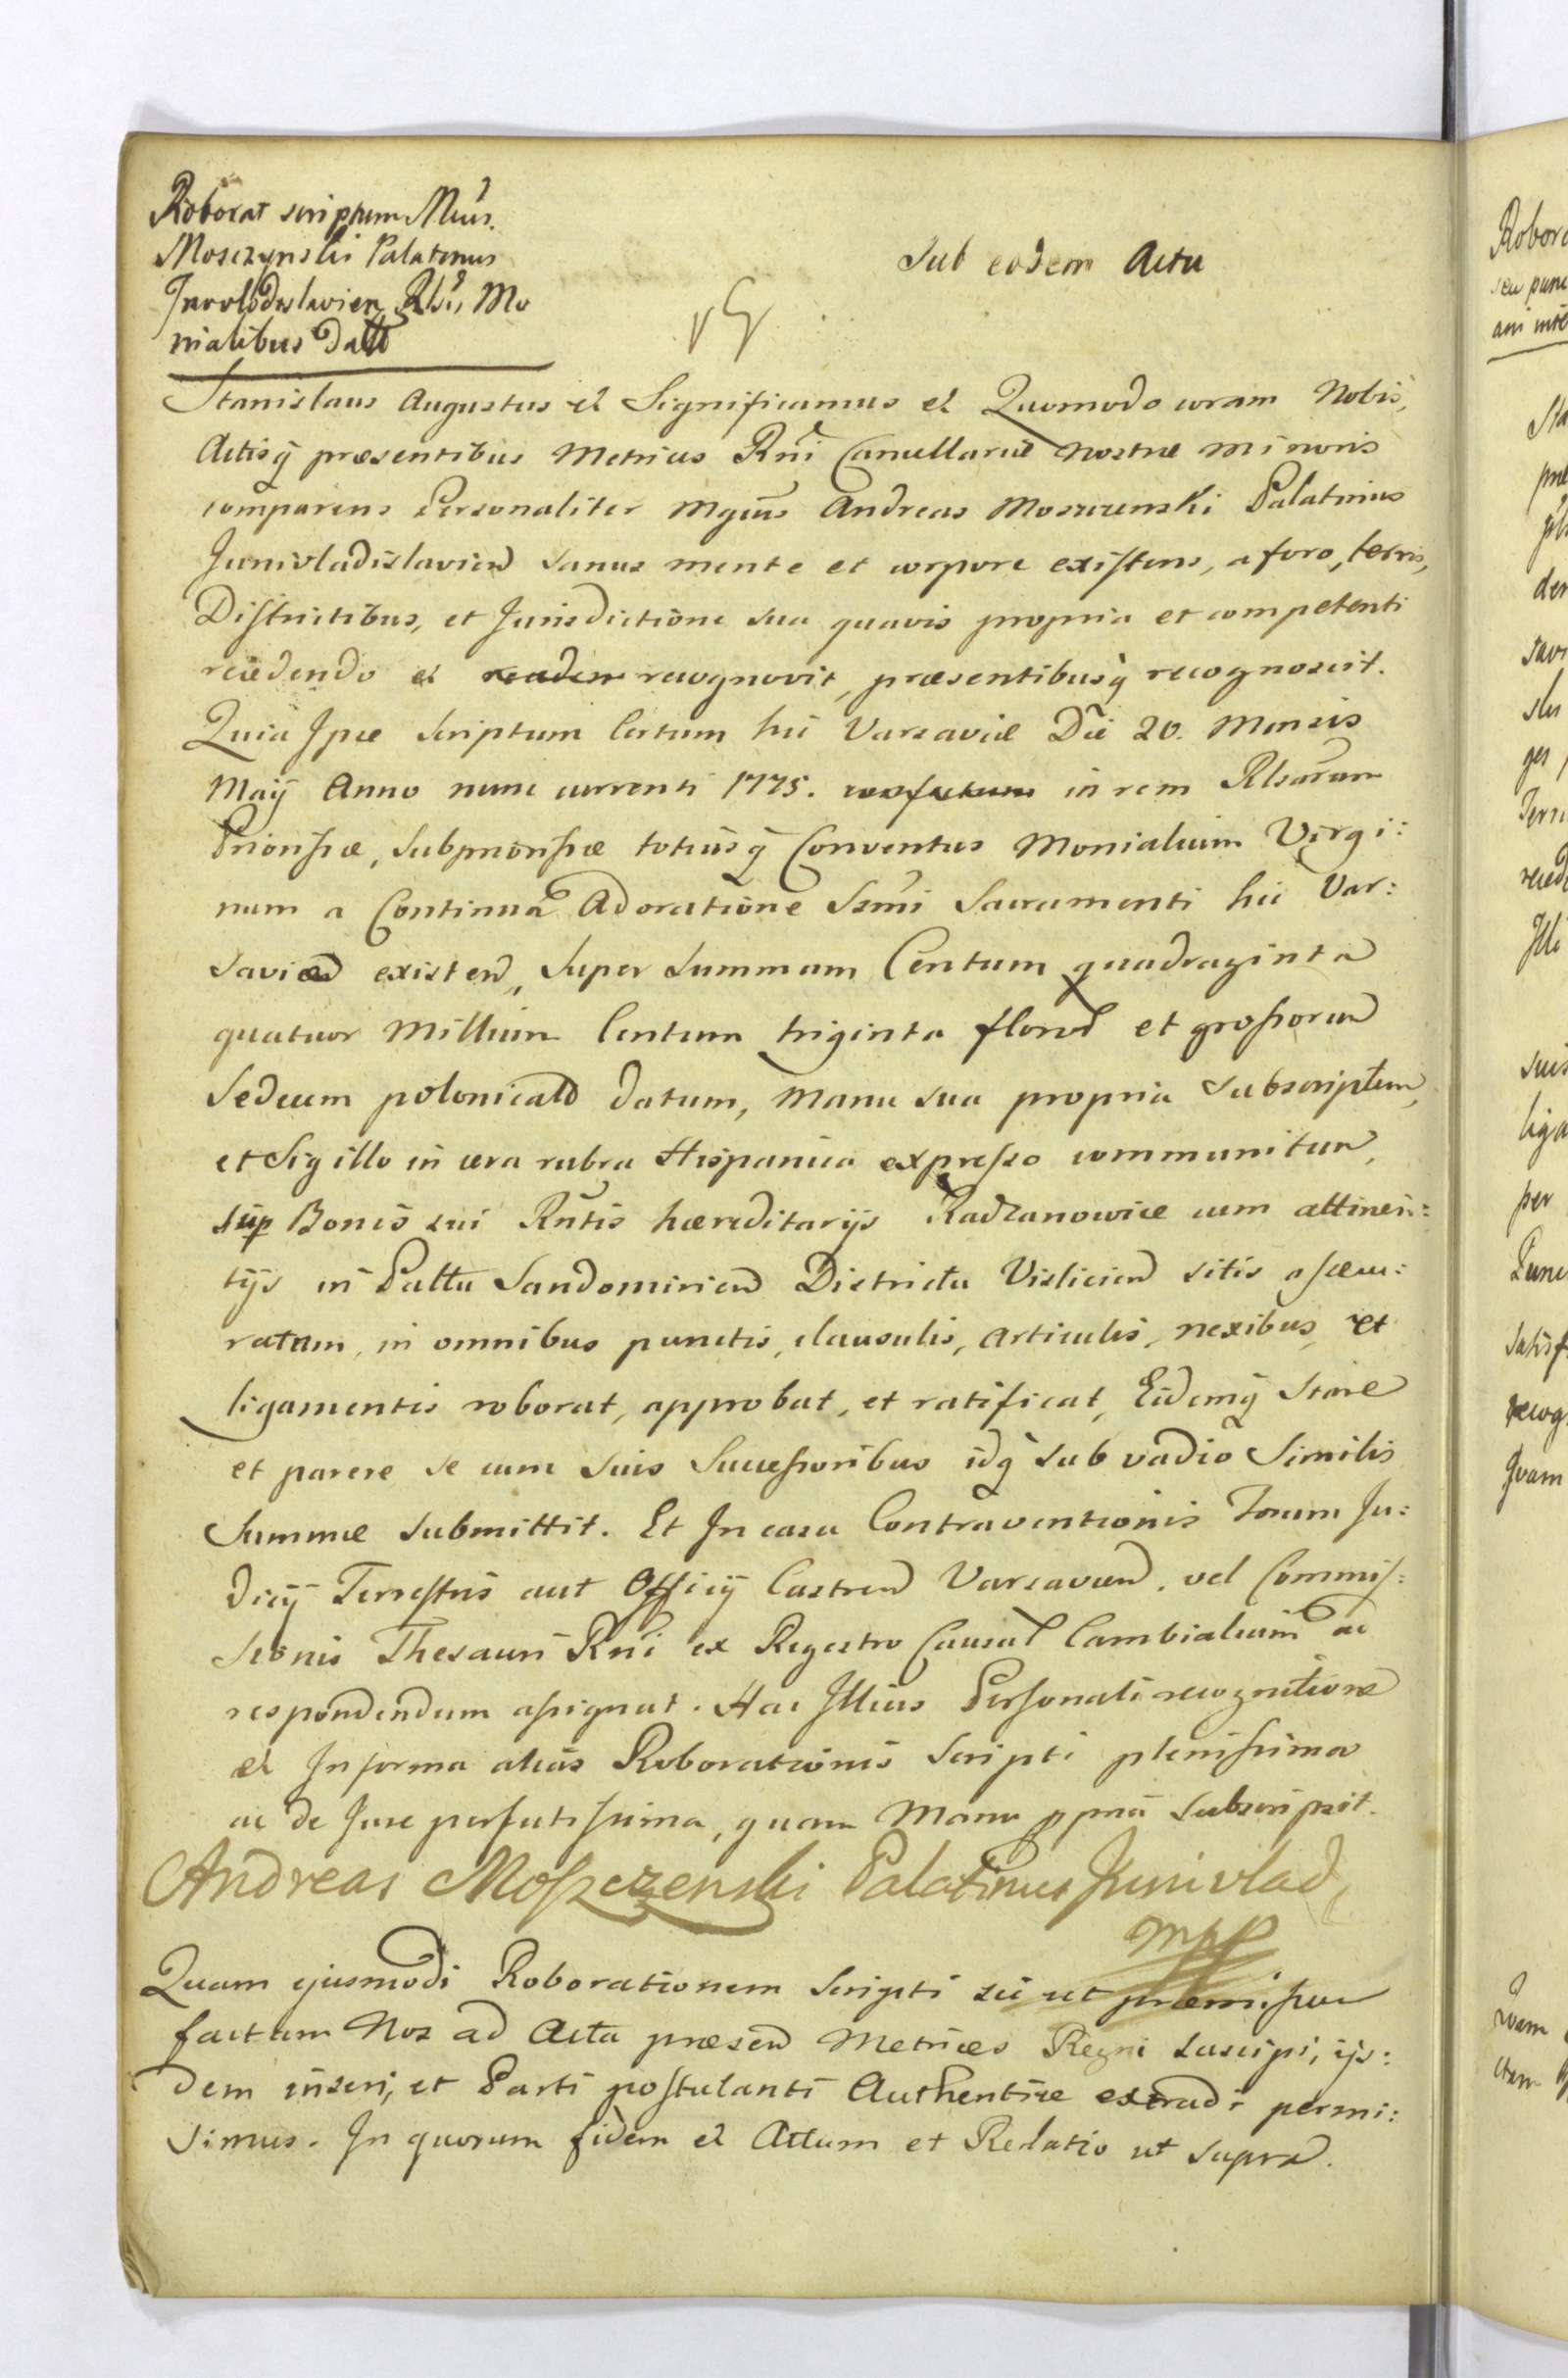 Roborat scriptum Mcus.
Moszczynski Palatinus
Junivlodislavien Rlsis Mo
nialibus datt
Sub eodem Actu
Stanislaus Augustus et Significamus et Quomodo coram Nobis,
Actisq̃ præsentibus Metrices Rñi Cancellariæ nostræ minoris
comparens Personaliter Mgcus Andreas Moszczenski Palatinus
Junivladislavien sanus mente et corpore existens, a foro, terris,
Districtibus, et Jurisdictione sua quavis propria et competenti
recedendo et recognovit, præsentibusq̃ recognoscit.
Quia Ipse Scriptum Certum hic Varsaviæ Die 20. Mensis
Maij Anno nunc currenti 1775. in rem Rlsarum
Priorissæ, Subpriorissæ totiusq̃ Conventus Monialium Virgi:
num a Continua Adoratione Ssmi Sacramenti hic Var:
saviæ existen, Super Summam Centum quadraginta
quatuor Millium Centum triginta floren et grossorum
Sedecim polonical datum, Manu sua propria subscriptum,
et Sigillo in cera rubra Hispanica expresso communitum,
sup Bonis sui Rñtis hæreditarijs Radzanowice cum attinen:
tijs in Palttu Sandomirien Districtu Vislicien sitis assecu:
ratum, in omnibus punctis, clausulis, articulis, nexibus, et
ligamentis roborat, approbat, et ratificat, Eidemq̃ Stare
et parere se cum suis Successoribus idq̃ sub vadio Similis
Summæ submittit. Et In casu Contraventionis Forum Ju:
dicij Terrestris aut Officij Castren Varsavien. vel Commis:
sionis Thesauri Rñi ex Regestro Causal Cambialium ad
respondendum assignat. Hac Illius Personali recognitione
et In forma alias Roborationis Scripti plenissima
ac de Jure perfectissima, quam Manu ppria Subscripsit.
Andreas Moszczenski Palatinus Junivlad,
mpp
Quam ejusmodi Roborationem Scripti sic ut præmissum
factam Nos ad Acta præsen Metrices Regni suscipi, ijs:
dem inseri, et Parti postulanti Authentice extradi permi:
simus. In quorum fidem et Actum et Relatio ut supra.